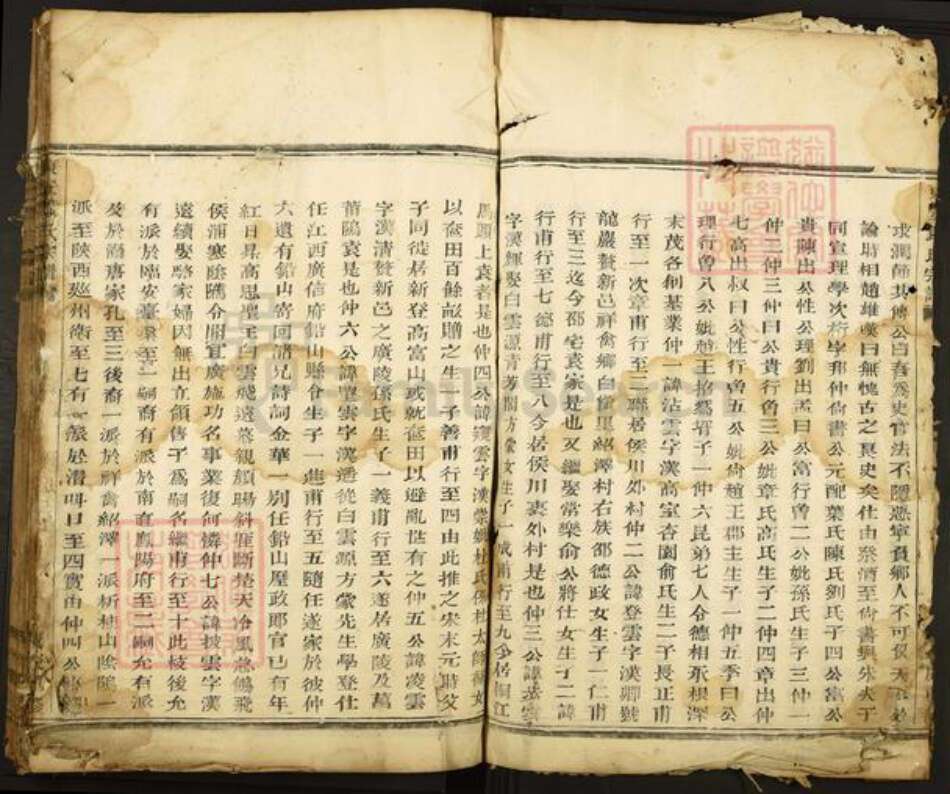 求潤飾其傳公曰吾為史官法不隱惡寧負鄉人不可
論時相趙雄嘆曰無愧古之良史矣仕由祭酒至尚書與朱夫子
同宣理學次桁字邦仲尚書公元配葉氏陳氏劉氏子四公富公
貴陳出公性公理劉出孟曰公富行曾二公妣孫氏生子三仲一
仲二仲三仲曰公貴行曾三公妣章氏高氏生子二仲四章出仲
七高出叔曰公性行曾五公妣尚趙王郡主生子一仲五季曰公
理行曾八公妣趙王招為壻子一仲六昆弟七人令德相承根深
末茂各創基業仲一諱沾雲字漢高宝杏園俞氏生二子長正甫
行至一次章甫行至二聯居侯川外村仲二公諱登雲字漢卿號
龍巖贅新邑祥禽鄉白 里紹澤村右族邵德政女生子一仁甫
行至三迄今邵宅袁家是也又繼娶常樂俞公將仕女生子二諱
行甫行至七德甫行至八今居侯川裏外村是也仲三公諱 雲
字漢輝娶白雲源青芳閣方蒙女生子一成甫行至九今居桐江
馬頭上袁者是也仲四公諱 雲字漢崇 杜氏係杜太師 女
以奩田百餘畝贈之生一子善甫行至四由此推之宋末元時父
子同徙居新登高富山或就奩田以避亂世有之仲五公諱凌雲
字漢清贅新邑之廣陵孫氏生子一義甫行至六遂居廣陵及萬
莆隖袁是也仲六公諱 雲字漢透從白雲源方蒙先生學登仕
任江西廣信府鉛山縣令生子一進甫行至五隨任遂家於彼仲
六遺有鉛山寄回諸兄詩詞金華一別任鉛山歷政郎官已有年
紅日昇高思 王白雲飛遠 親顏 斜 斷楚天冷風 飛
侯浦寒陰 今閒宜廣施功名事業復何憐仲七公諱披雲字漢
遠續娶駱家婦因無出立領售子為嗣名繼甫行至十此枝後允
有一派於臨安 至一嗣裔有一派於南直鳳陽府至二嗣允有派
發於 唐家孔至三後裔一派於祥禽紹澤一派析桂山陰隖一
派至陝西延州衛至七有一派於潛 口至四實由仲四公